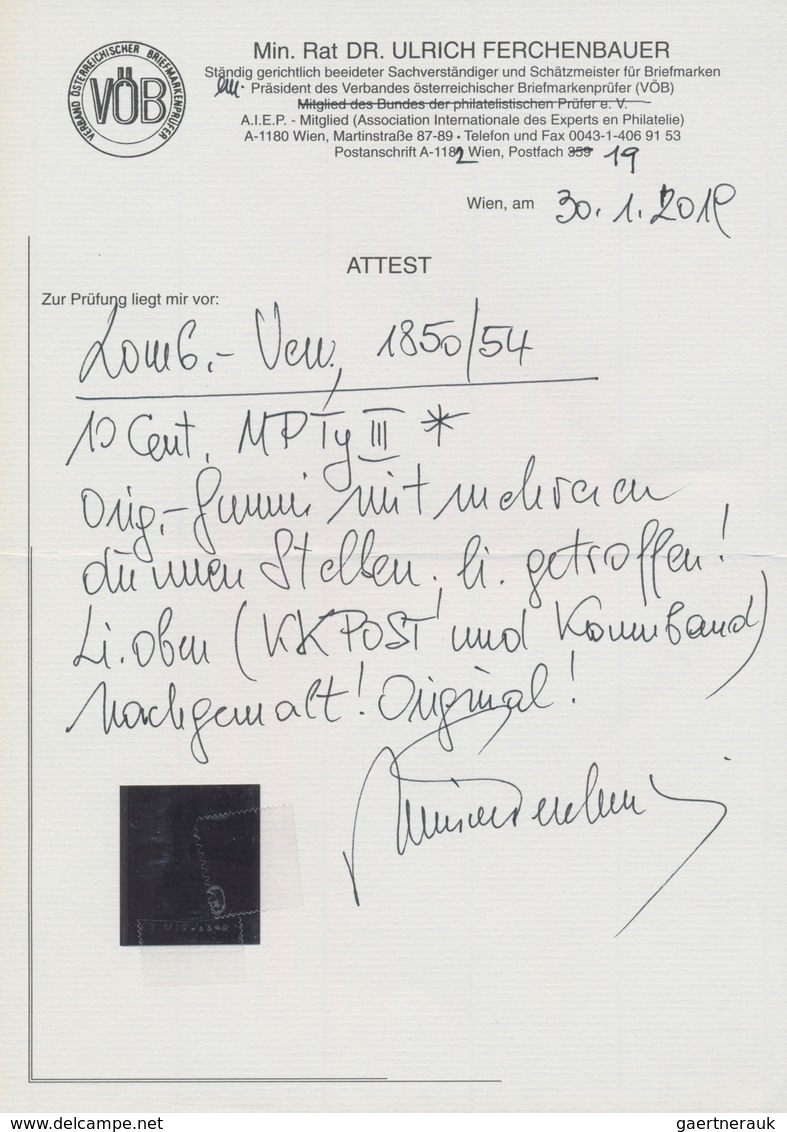 VERBAND ÖSTERREICHISCHER BRIEFMARKENPRÜFER
VÖB
Min. Rat DR. ULRICH FERCHENBAUER
Ständig gerichtlich beeideter Sachverständiger und Schätzmeister für Briefmarken
em. Präsident des Verbandes österreichischer Briefmarkenprüfer (VÖB)
Mitglied des Bundes der philatelistischen Prüfer e. V.
A.I.E.P. - Mitglied (Association Internationale des Experts en Philatelie)
A-1180 Wien, Martinstraße 87-89 • Telefon und Fax 0043-1-406 91 53
Postanschrift A-1182 Wien, Postfach 359 19
Wien, am 30. 1. 201
ATTEST
Zur Prüfung liegt mir vor:
Lomb.- Ven, 1850/54
10 Cent, MP Ty III *
Orig.- Gummi mit mehreren
dünnen Stellen. li. getroffen!
Li. oben (KKPOST und Kronband)
Nachgemalt! Original!
www.delcampe.net
gaertnerauk